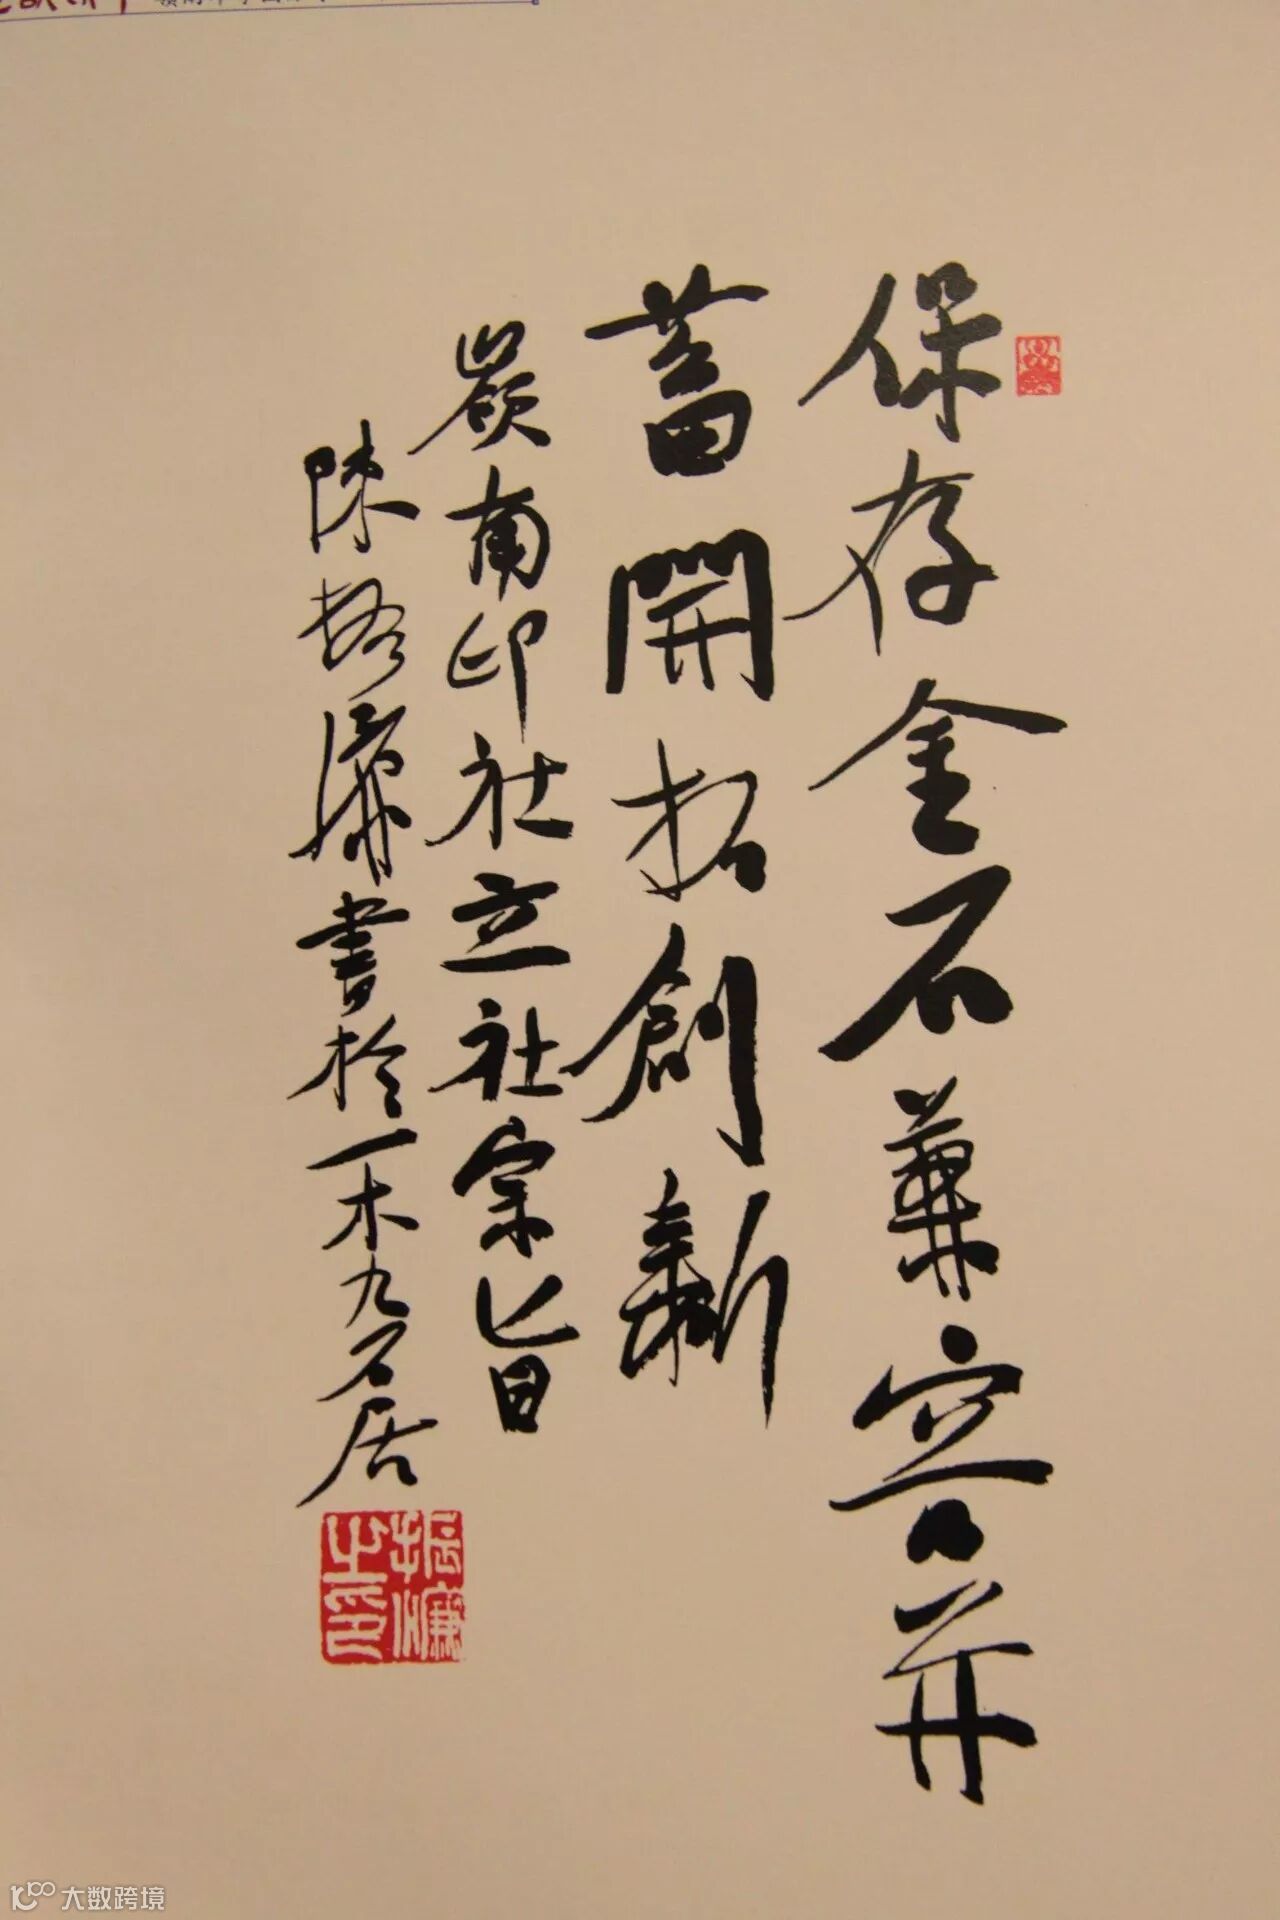 保存金石兼容并
蓄開拓創新
嶺南印社立社宗旨
陳振濂書於一木九石居
振濂之印
大数跨境